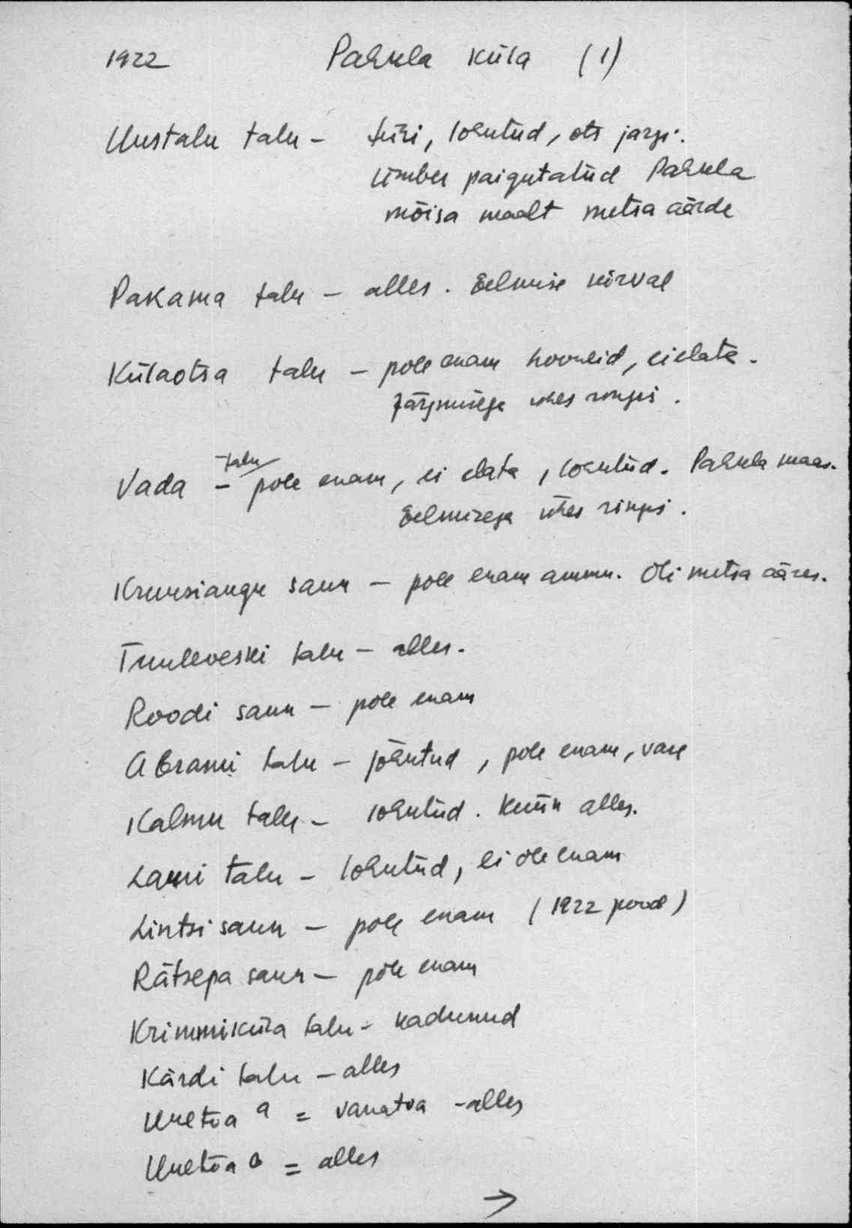 1922 Pahkla küla (1)
Uustalu talu - lohutud, ots järgi.
Ümber paigutatud Pahkla
mõisa maalt metsa äärde
Pakama talu - alles. Eelmise kõrval
Külaotsa talu - pole enam hooneid, ei elata.
Järgmisega ühes ringis.
Vada talu - pole enam, ei elata, lohutud. Pahkla maas.
Eelmisega ühes ringis.
saun - pole enam ammu. Oli metsa ääres.
Tuuleveski talu - alles.
Roodi saun - pole enam
Abrami talu - lõhutud, pole enam, vare
Kalmu talu - lohutud. Küün alles.
Lauri talu - lohutud, ei ole enam
Lintsi saun - pole enam (1922 pood)
Rätsepa saun - pole enam
Krimmiküla talu - kadunud
Kärdi talu - alles
Uuetoa a = vanatoa - alles
Uuetoa b = alles
→